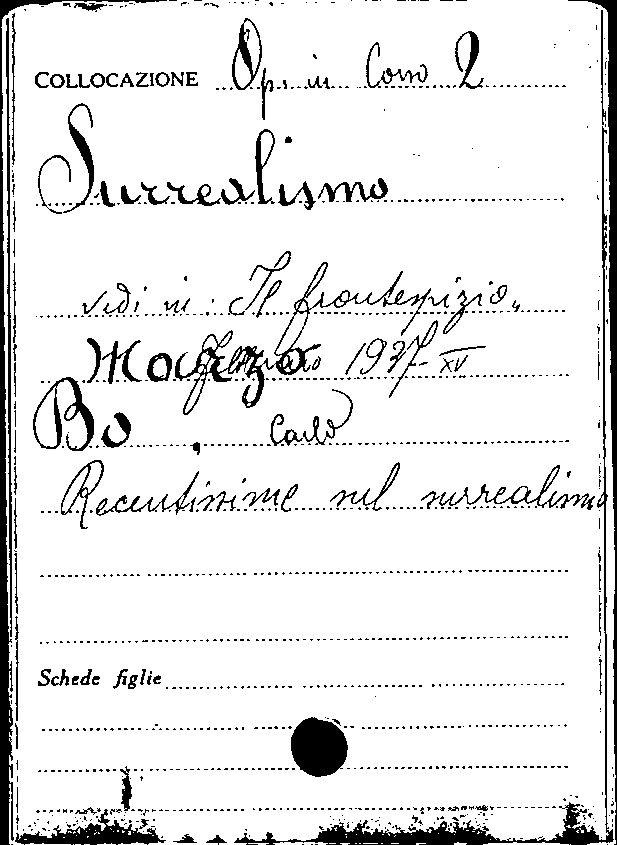 COLLOCAZIONE Op. in Corso 2
Surrealismo
vedi in: Il frontespizio,
Marzo 1937 XV
Bo, Carlo
Recentissime sul surrealismo
Schede figlie